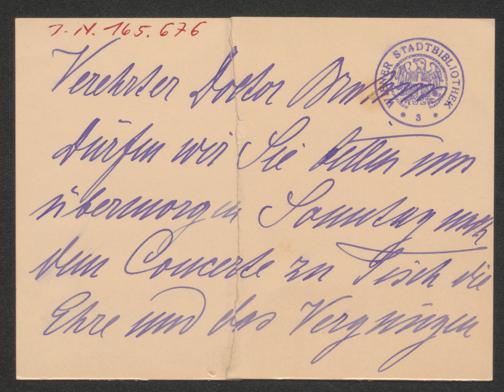 I.N. 165.676
WIENER STADTBIBLIOTHEK
* 3 *
Verehrter Doctor
Dürfen wir Sie bitten uns
übermorgen Sonntag nach
dem Concerte zu Tisch die
Ehre und das Vergnügen